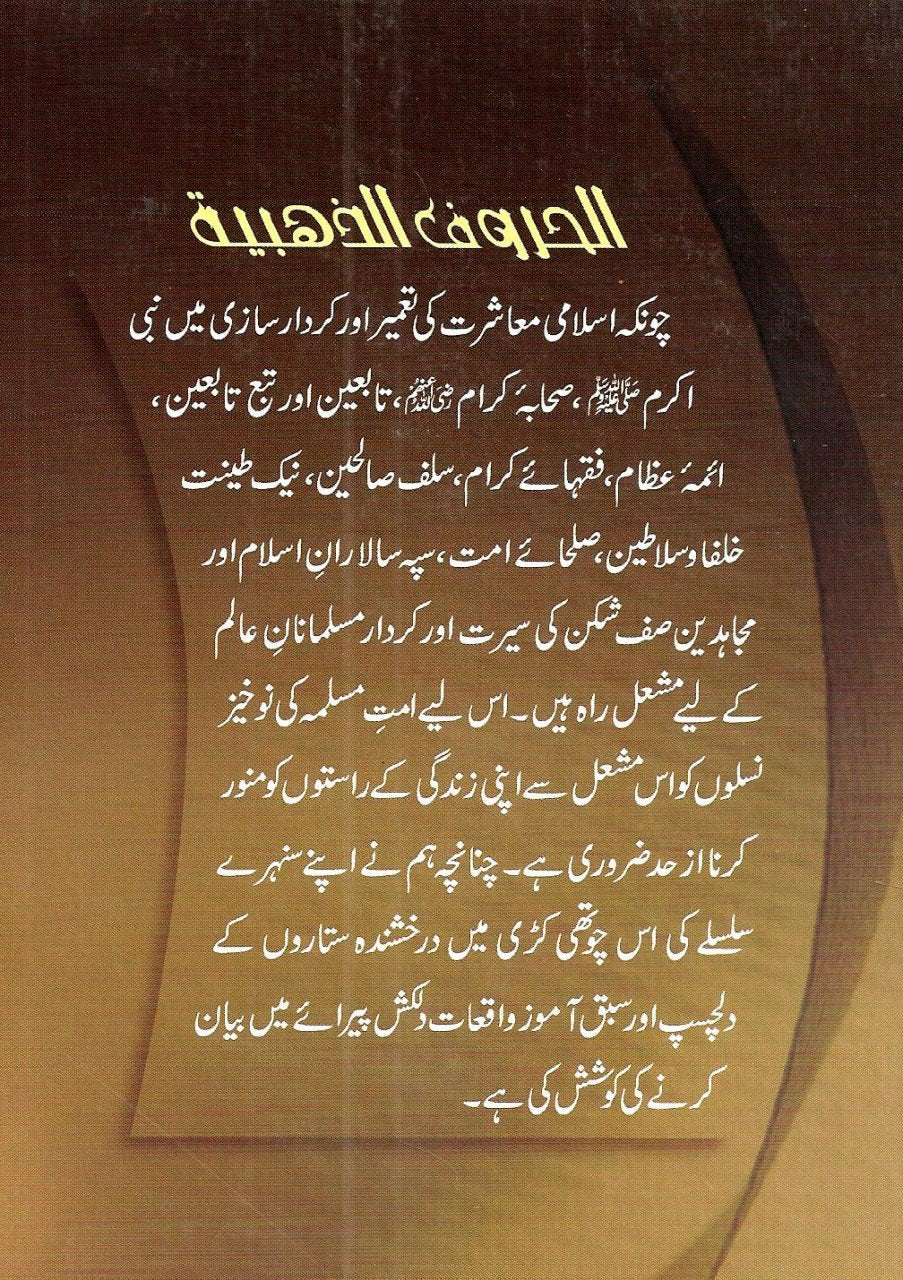 الحروف الذهبية
چونکہ اسلامی معاشرت کی تعمیر اور کردار سازی میں نبی
اکرم ﷺ، صحابۂ کرام رضی اللہ عنہم، تابعین اور تبع تابعین،
ائمۂ عظام، فقہائے کرام، سلف صالحین، نیک طینت
خلفا و سلاطین، صلحائے امت، سپہ سالارانِ اسلام اور
مجاہدین صف شکن کی سیرت اور کردار مسلمانانِ عالم
کے لیے مشعل راہ ہیں۔ اس لیے امتِ مسلمہ کی نوخیز
نسلوں کو اس مشعل سے اپنی زندگی کے راستوں کو منور
کرنا از حد ضروری ہے۔ چنانچہ ہم نے اپنے سنہرے
سلسلے کی اس چوتھی کڑی میں درخشندہ ستاروں کے
دلچسپ اور سبق آموز واقعات دلکش پیرائے میں بیان
کرنے کی کوشش کی ہے۔